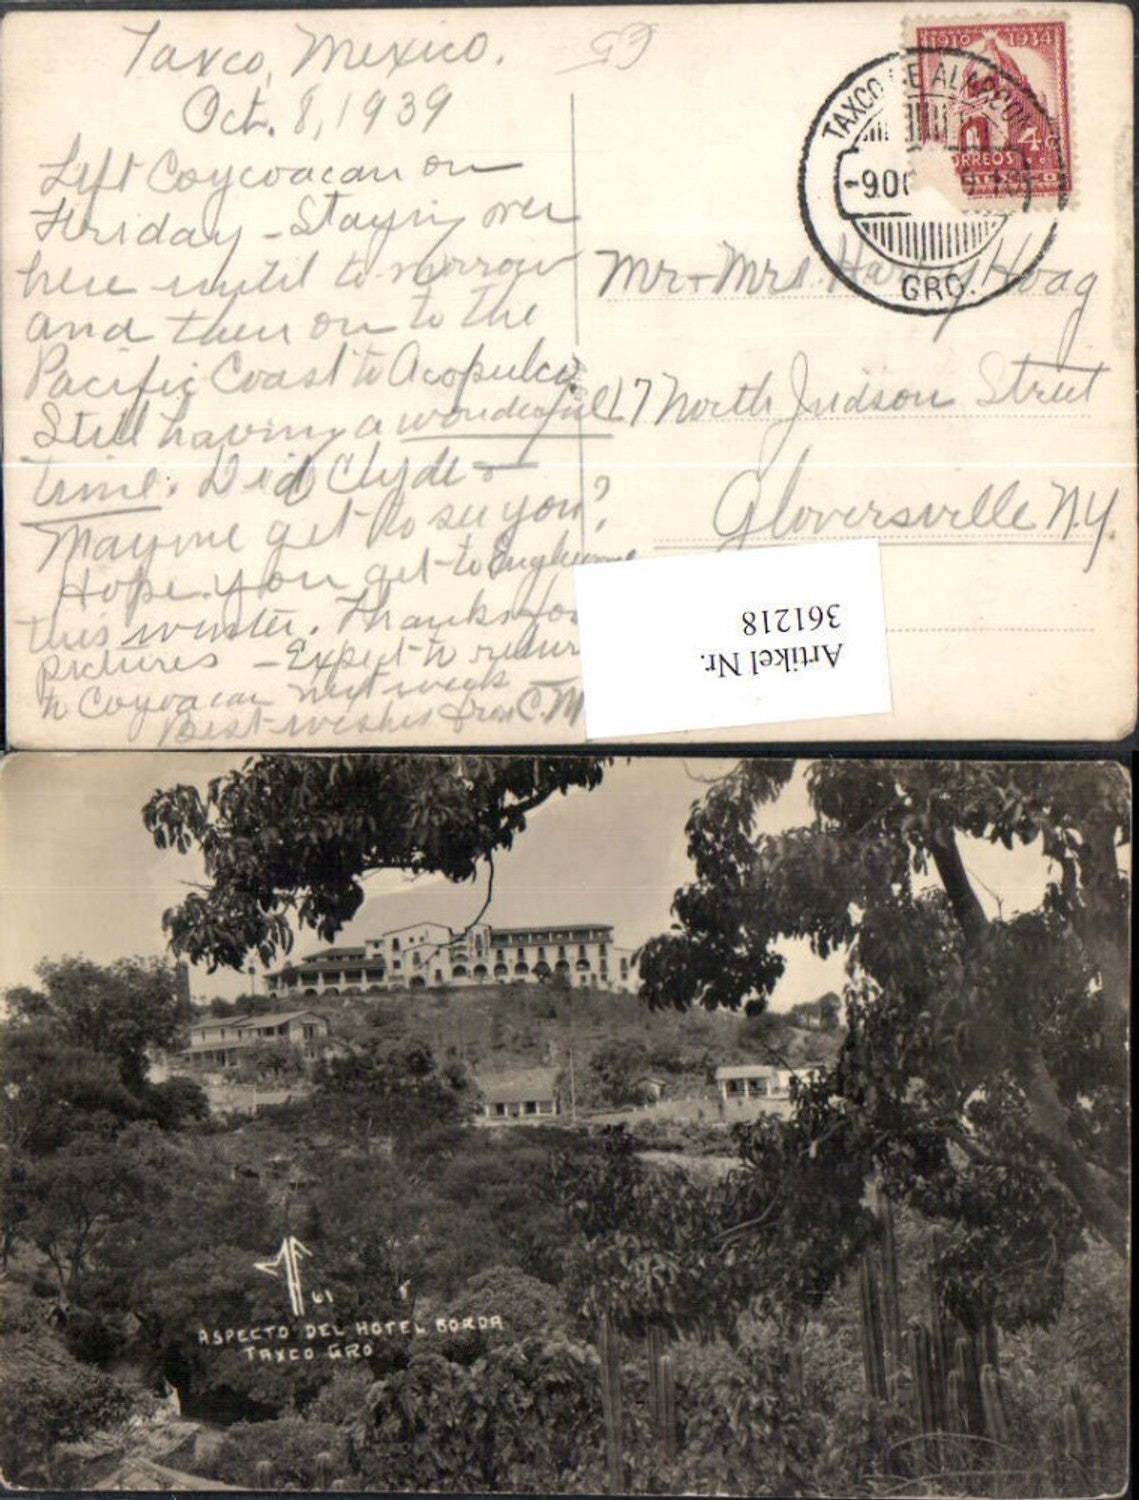 Taxco, Mexico.
Oct. 8, 1939
Left Coyvoacan on
Friday - Staying over
here until to-morrow
and then on to the
Pacific Coast to Acapulco.
Still having a wonderful
time. Did Clyde +
Mayme get to see you?
Hope you get to
this winter. Thanks for
pictures - Expect to return
to Coyoacan next week
Best wishes from C. M
1910 1934
4c
CORREOS
MEXICO
TAXCO DE ALARCON
-9 OC
GRO.
Mr + Mrs. Harry Hoag
17 North Judson Street
Gloversville N.Y.
Artikel Nr.
361218
61
ASPECTO DEL HOTEL BORDA
TAXCO GRO